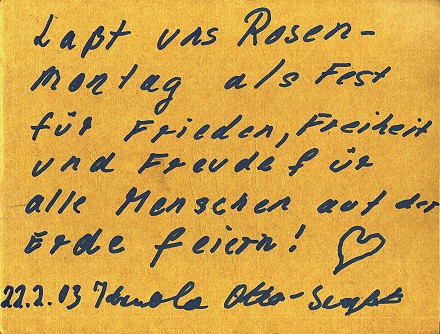 Laßt uns Rosen-
montag als Fest
für Frieden, Freiheit
und Freude für
alle Menschen auf der
Erde feiern!
22.2.03 Otto-